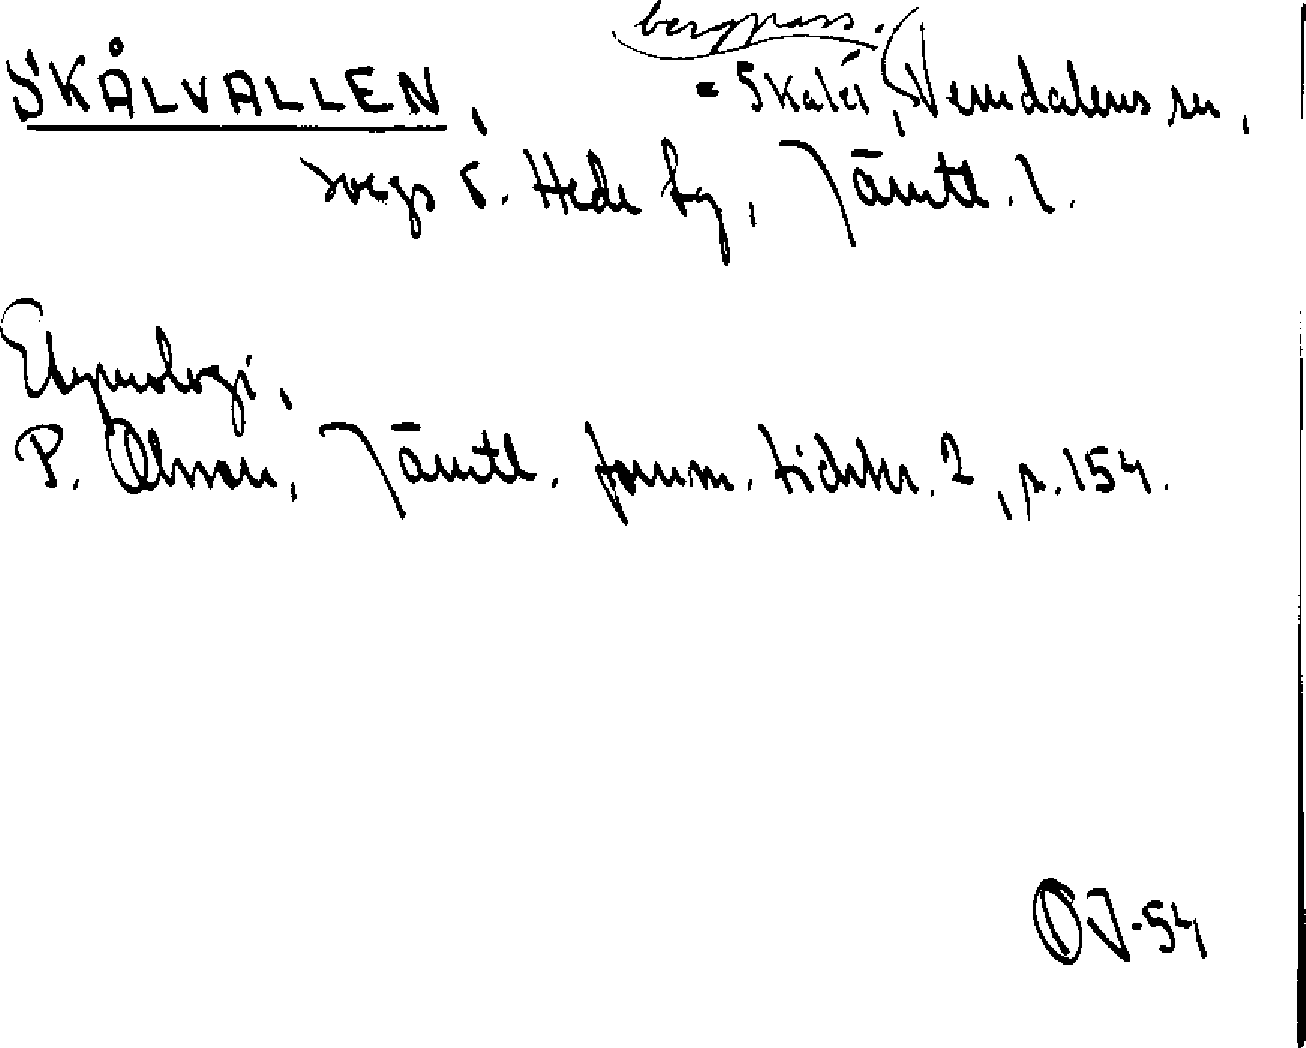 bergpass.
SKÅLVALLEN, = Skalet, Vemdalens sn,
Svegs o. Hede tg, Jämtl. l.
Etymologi,
P. Olsson, Jämtl. fornm. tidskr. 2, s. 154.
OJ-54